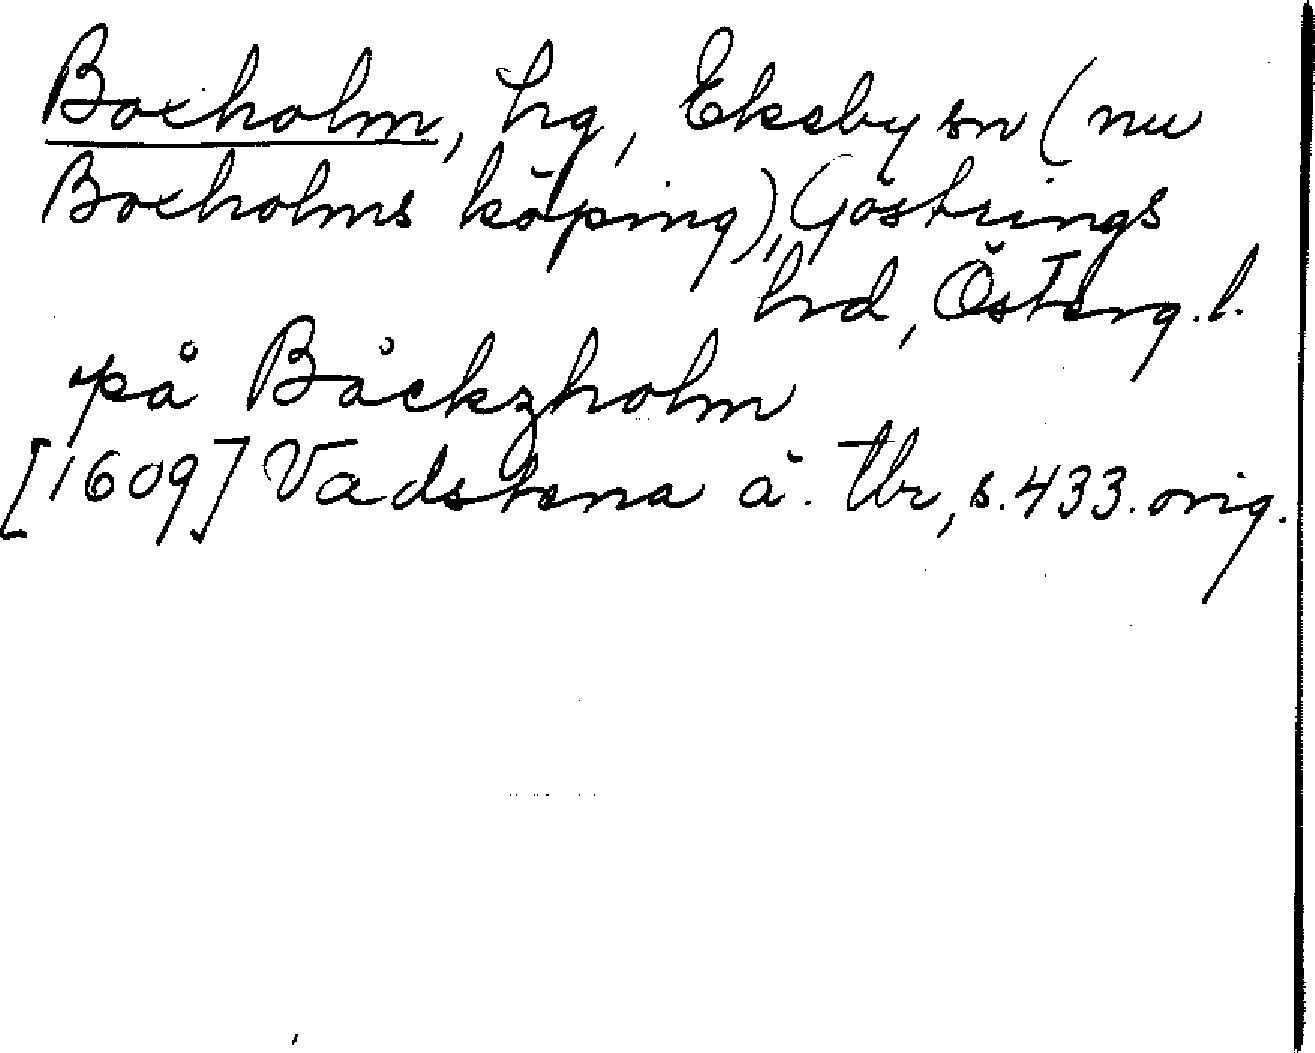 Boxholm, hg, Ekeby sn (nu
Boxholms köping), Göstrings
hrd, Österg. l.
på Båckzholm
[1609] Vadstena ä. tbr, s. 433. orig.